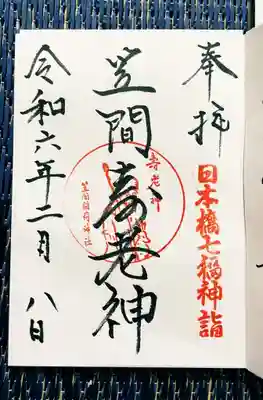 奉拝
日本橋七福神詣
笠間寿老神
寿老神
笠間稲荷神社
令和六年二月八日